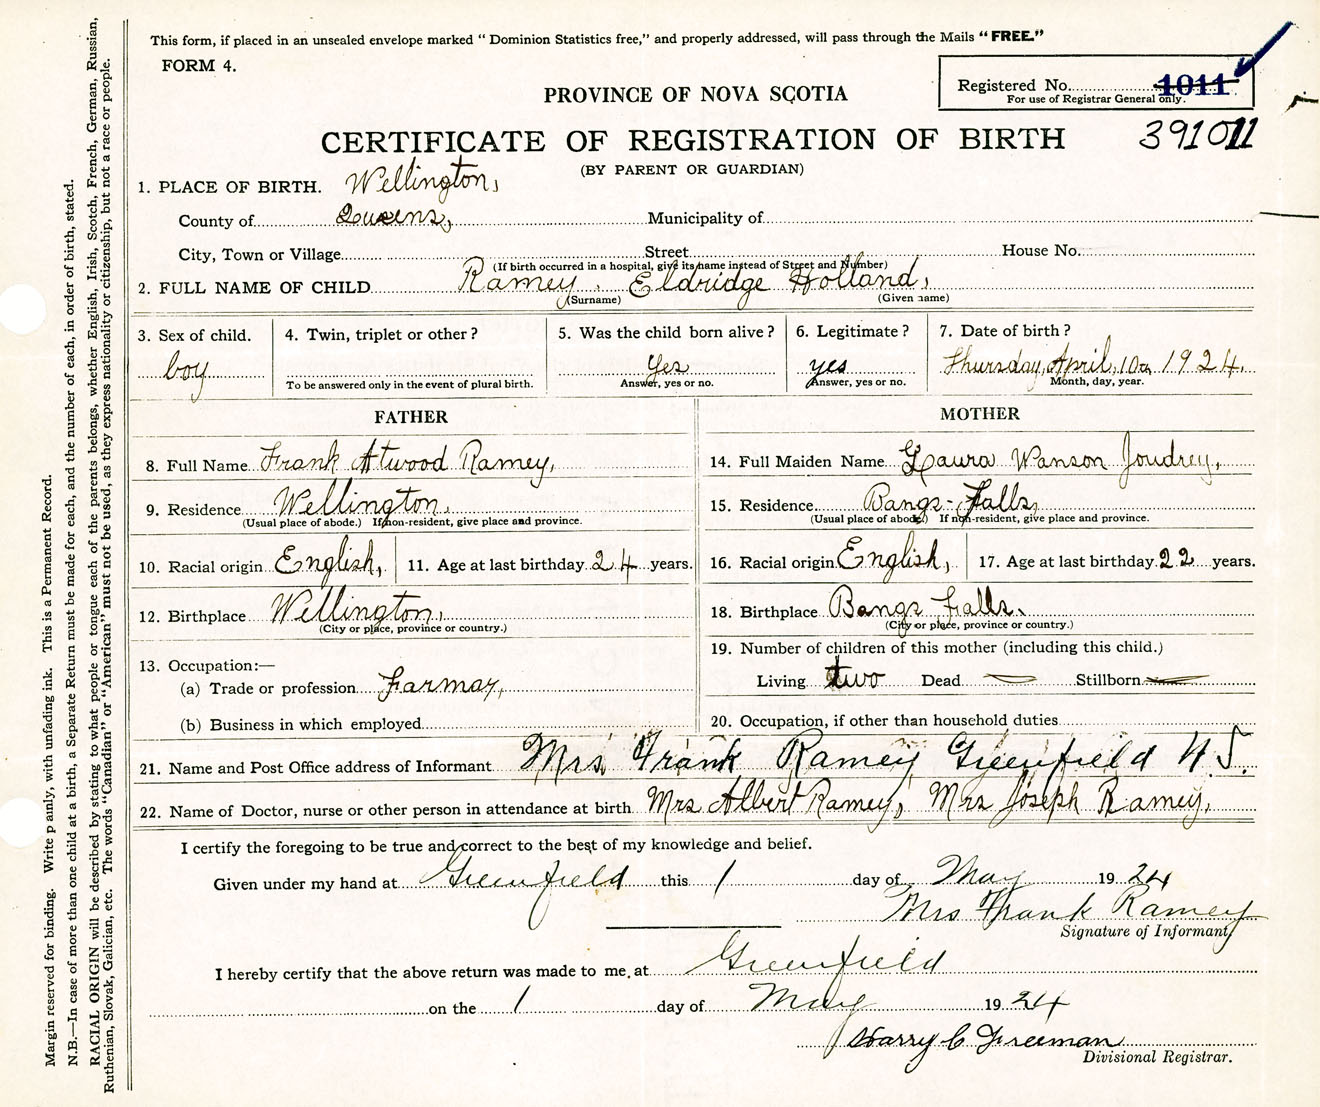 This form, if placed in an unsealed envelope marked " Dominion Statistics free," and properly addressed, will pass through the Mails " FREE."
FORM 4.
Registered No. 1011
For use of Registrar General only.
PROVINCE OF NOVA SCOTIA
391011
CERTIFICATE OF REGISTRATION OF BIRTH
(BY PARENT OR GUARDIAN)
1. PLACE OF BIRTH. Wellington,
County of Queens, Municipality of
City, Town or Village Street House No.
(If birth occurred in a hospital, give its name instead of Street and Number)
2. FULL NAME OF CHILD Ramey, Eldridge Holland,
(Surname) (Given name)
3. Sex of child. 4. Twin, triplet or other? 5. Was the child born alive? 6. Legitimate? 7. Date of birth?
boy Yes yes Thursday, April, 10, 1924.
To be answered only in the event of plural birth. Answer, yes or no. Answer, yes or no. Month, day, year.
FATHER MOTHER
8. Full Name Frank Atwood Ramey, 14. Full Maiden Name Laura Wanson Joudrey,
9. Residence Wellington, 15. Residence Bangs-Falls,
(Usual place of abode.) If non-resident, give place and province. (Usual place of abode.) If non-resident, give place and province.
10. Racial origin English, 11. Age at last birthday 24 years. 16. Racial origin English, 17. Age at last birthday 22 years.
12. Birthplace Wellington, 18. Birthplace Bangs Falls.
(City or place, province or country.) (City or place, province or country.)
13. Occupation:— 19. Number of children of this mother (including this child.)
(a) Trade or profession Farmar, Living two Dead Stillborn
(b) Business in which employed 20. Occupation, if other than household duties
21. Name and Post Office address of Informant Mrs Frank Ramey Greenfield N.S.
22. Name of Doctor, nurse or other person in attendance at birth Mrs Albert Ramey, Mrs Joseph Ramey,
I certify the foregoing to be true and correct to the best of my knowledge and belief.
Given under my hand at Greenfield this 1 day of May 1924
Mrs Frank Ramey
Signature of Informant
I hereby certify that the above return was made to me, at Greenfield
on the 1 day of May 1924
Harry C Freeman
Divisional Registrar.
Margin reserved for binding. Write p anly, with unfading ink. This is a Permanent Record.
N.B.—In case of more than one child at a birth, a Separate Return must be made for each, and the number of each, in order of birth, stated.
RACIAL ORIGIN will be described by stating to what people or tongue each of the parents belongs, whether English, Irish, Scotch, French, German, Russian,
Ruthenian, Slovak, Galician, etc. The words "Canadian" or "American" must not be used, as they express nationality or citizenship, but not a race or people.